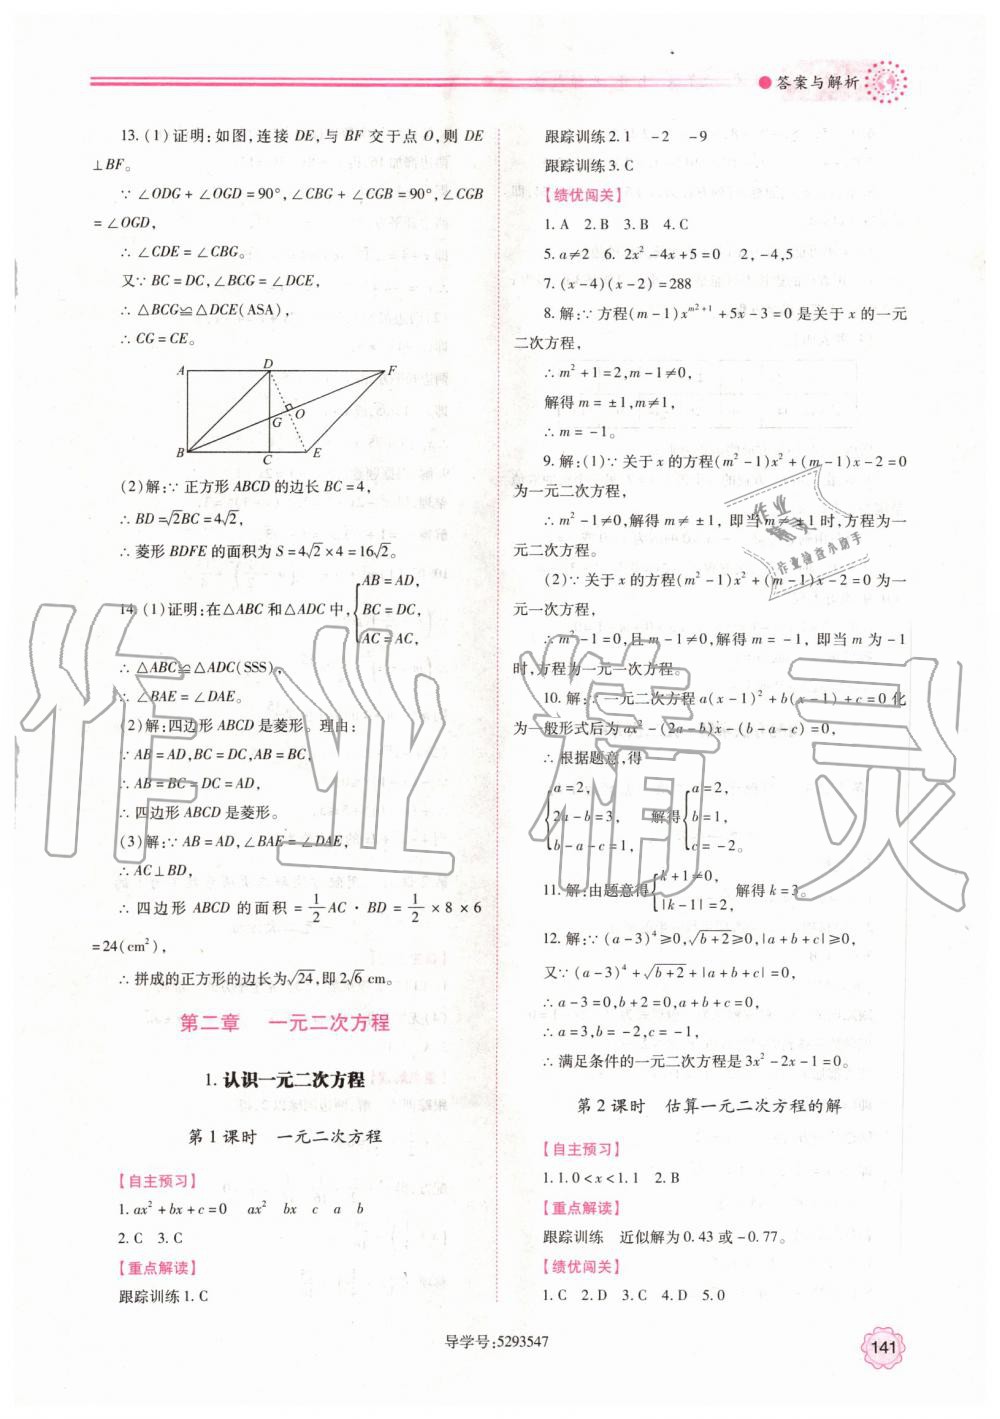 答案与解析
13. (1)证明:如图,连接 DE,与 BF 交于点 O,则 DE
⊥BF。
∵ ∠ODG + ∠OGD = 90°, ∠CBG + ∠CGB = 90°, ∠CGB
= ∠OGD,
∴ ∠CDE = ∠CBG。
又∵ BC = DC, ∠BCG = ∠DCE,
∴ △BCG≌△DCE(ASA),
∴ CG = CE。
A D F
G O
B C E
(2)解:∵ 正方形 ABCD 的边长 BC = 4,
∴ BD = √2BC = 4√2,
∴ 菱形 BDFE 的面积为 S = 4√2 × 4 = 16√2。
14. (1)证明:在△ABC 和△ADC 中, {AB = AD,
BC = DC,
AC = AC,
∴ △ABC≌△ADC(SSS),
∴ ∠BAE = ∠DAE。
(2)解:四边形 ABCD 是菱形。理由:
∵ AB = AD, BC = DC, AB = BC,
∴ AB = BC = DC = AD,
∴ 四边形 ABCD 是菱形。
(3)解:∵ AB = AD, ∠BAE = ∠DAE,
∴ AC⊥BD,
∴ 四边形 ABCD 的面积 = 1/2 AC · BD = 1/2 × 8 × 6
= 24(cm²),
∴ 拼成的正方形的边长为√24,即 2√6 cm。
第二章 一元二次方程
1. 认识一元二次方程
第 1 课时 一元二次方程
【自主预习】
1. ax² + bx + c = 0 ax² bx c a b
2. C 3. C
【重点解读】
跟踪训练 1. C
跟踪训练 2. 1 -2 -9
跟踪训练 3. C
【绩优闯关】
1. A 2. B 3. B 4. C
5. a≠2 6. 2x² - 4x + 5 = 0 2, -4, 5
7. (x - 4)(x - 2) = 288
8. 解:∵ 方程(m - 1)x^(m²+1) + 5x - 3 = 0 是关于 x 的一元
二次方程,
∴ m² + 1 = 2, m - 1≠0,
解得 m = ±1, m≠1,
∴ m = -1。
9. 解:(1)∵ 关于 x 的方程(m² - 1)x² + (m - 1)x - 2 = 0
为一元二次方程,
∴ m² - 1≠0,解得 m≠ ±1, 即当 m≠ ±1 时,方程为一
元二次方程。
(2)∵ 关于 x 的方程(m² - 1)x² + (m - 1)x - 2 = 0 为一
元一次方程,
∴ m² - 1 = 0,且 m - 1≠0,解得 m = -1, 即当 m 为 -1
时,方程为一元一次方程。
10. 解:∵ 一元二次方程 a(x - 1)² + b(x - 1) + c = 0 化
为一般形式后为 ax² - (2a - b)x - (b - a - c) = 0,
∴ 根据题意,得
{a = 2, {a = 2,
2a - b = 3, 解得 b = 1,
b - a - c = 1, c = -2。
11. 解:由题意得{k + 1≠0,
|k - 1| = 2, 解得 k = 3。
12. 解:∵ (a - 3)⁴≥0, √(b + 2)≥0, |a + b + c|≥0,
又∵ (a - 3)⁴ + √(b + 2) + |a + b + c| = 0,
∴ a - 3 = 0, b + 2 = 0, a + b + c = 0,
∴ a = 3, b = -2, c = -1,
∴ 满足条件的一元二次方程是 3x² - 2x - 1 = 0。
第 2 课时 估算一元二次方程的解
【自主预习】
1. 1. 0 < x < 1. 1 2. B
【重点解读】
跟踪训练 近似解为 0. 43 或 -0. 77。
【绩优闯关】
1. C 2. D 3. C 4. D 5. 0
导学号:5293547
141
作业精灵
作业
精灵
作业检查小助手